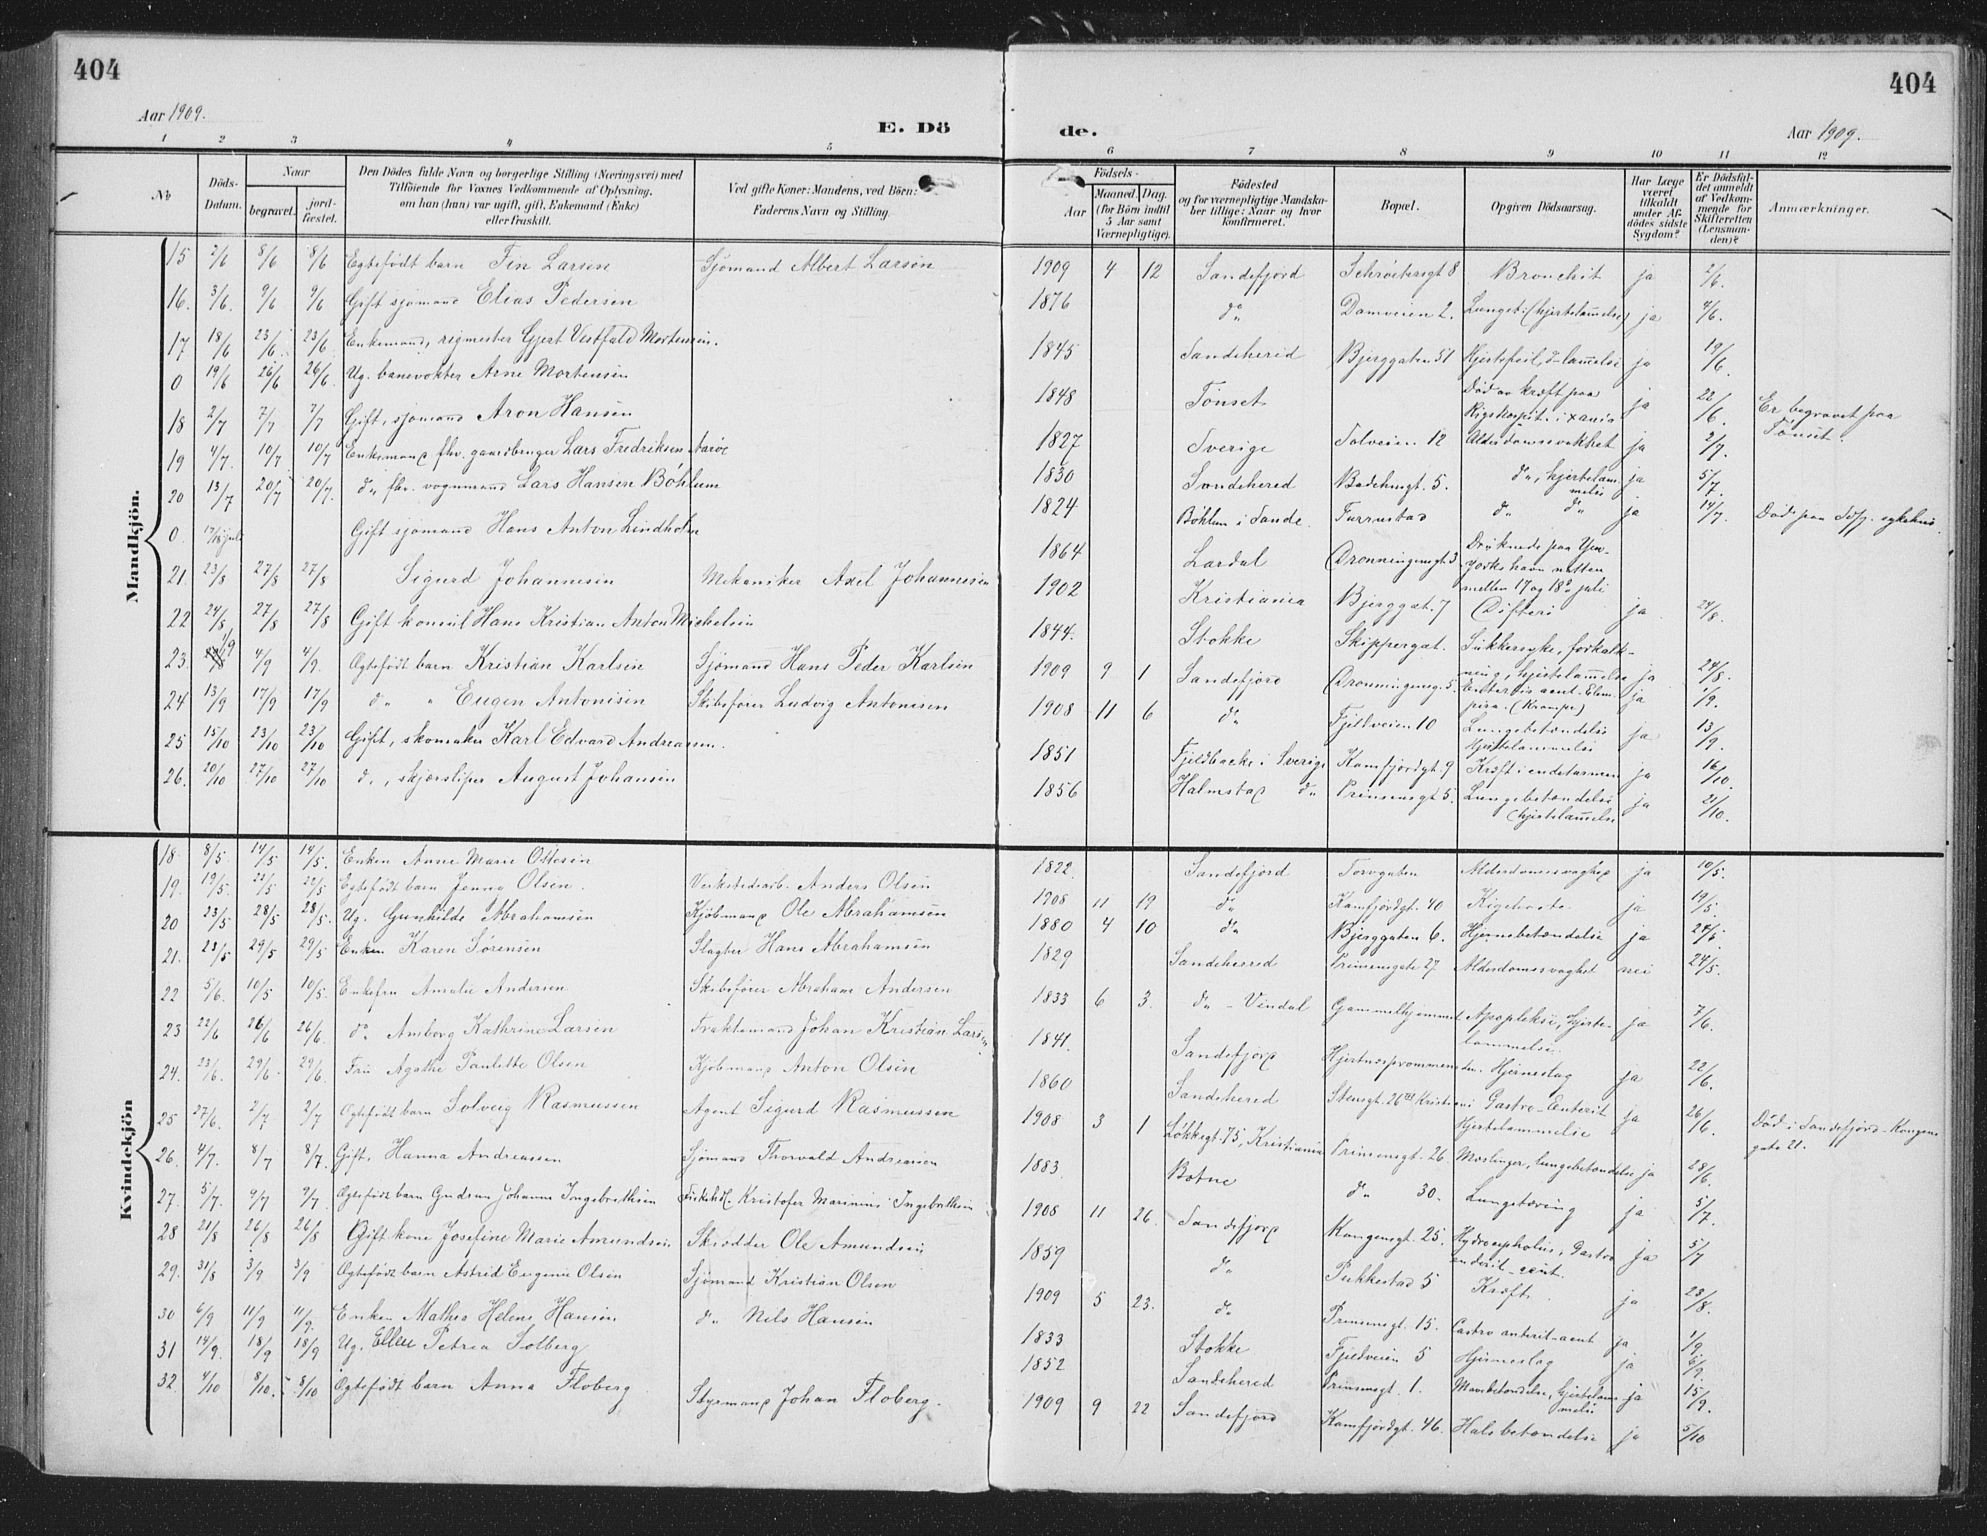 404
404
Aar 1909.
E. Dö
de.
Aar 1909.
1 2 3 4 5 6 7 8 9 10 11 12
No
Döds-Datum.
Naar
begravet.
jord-fæstet.
Den Dödes fulde Navn og borgerlige Stilling (Næringsvei) med
Tilföiende for Voxnes Vedkommende af Oplysning,
om han (hun) var ugift, gift, Enkemand (Enke)
eller fraskilt.
Ved gifte Koner: Mandens, ved Börn:
Faderens Navn og Stilling.
Födsels-
Aar
Maaned. Dag.
(for Börn indtil
5 Aar samt
Værnepligtige).
Födested
og for værnepligtige Mandska-
ber tillige: Naar og hvor
konfirmeret.
Bopæl.
Opgiven Dödsaarsag.
Har Læge
været
tilkaldt
under Af-
dödes sidste
Sygdom?
Er Dödsfal-
det anmeldt
af Vedkom-
mende for
Skifteretten
(Lensman-
den)?
Anmærkninger.
Mandkjön.
15 2/6 8/6 8/6 Egtefødt barn Fin Larsen Sjömand Albert Larsen 1909 4 12 Sandefjord Schrøtersgt 8 Bronchit ja 2/6.
16. 3/6. 9/6 9/6 Gift sjømand Elias Pedersen 1876 do Damveien 2. Lungeb: (hjertelammelse) ja 4/6.
17 18/6 23/6. 23/6 Enkemand, rigmester Gjert Vestfald Mortensen. 1845 Sandeherid Bjerggaten 51 Hjertefeil, d-lammelse ja 19/6.
0 19/6 26/6 26/6. Ug. banevokter Arne Mortensen 1848 Tönset Død av kræft paa
Rigshospit. i Xania ja 22/6. Er begravet paa
Tönset.
18 2/7 7/7 7/7 Gift, sjømand Aron Hansen 1827 Sverige Solveien 12 Alderdomssvakhet ja 2/7.
19 4/7. 10/7 10/7 Enkemand fhv. gaardbruger Lars Fredriksen 1830 Sandehered Badehusgt. 5. do, hjertelam-
melse ja 5/7.
20 13/7 20/7 20/7. do fhv. vognmand Lars Hansen Bøhlum 1824 Bøhlum i Sande. Furustad do do ja 14/7. Død paa Sdfj. sykehus.
0. 17/18 juli Gift sjømand Hans Anton Lindholm 1864 Lardal Dronningensgt 3 Druknede paa
Yorks havn natten
mellen 17 og 18de juli
21. 23/8 27/8 27/8 Sigurd Johannesen Mekaniker Axel Johannesen 1902 Kristiania Bjerggat. 7 Difteri ja 24/8.
22 24/8 27/8 27/8 Gift konsul Hans Kristian Anton Michelsen 1844. Stokke Skippergat. Sukkersyke, forkalk-
ning, hjertelammelse ja 24/8.
23. 1/9 4/9 4/9. Egtefødt barn Kristian Karlsen Sjømand Hans Peder Karlsen 1909 9 1 Sandefjord Dronningensg. 5. Enteritis acut - Elem
(Kramper) ja 1/9.
24 13/9 17/9 17/9 do " Eugen Antonisen Skibsfører Ludvig Antonisen 1908 11 6 do Fjeldveien 10 Lungebetændelse
Hjertelammelse ja 13/9.
25 15/10 23/10 23/10 Gift, skomaker Karl Edvard Andreassen. 1851 Fjeldbacke i Sverige Kamfjordgt. 9 Kræft i endetarmen ja 16/10.
26. 20/10 27/10 27/10 do, skjærsliper August Johansen 1856 Halmstad do Prinsensgt 5. Lungebetændelse
(hjertelammelse ja 21/10.
Kvindekjön
18 8/5 14/5 14/5. Enken Anne Marie Ottesen 1822 Sandefjord Torvgaten Alderdomssvaghed ja 10/5.
19. 19/5. 22/5 22/5 Egtefødt barn Jenna Olsen. Verkstedsarb. Anders Olsen 1908 11 19 do Kamfjordgt. 40 Kighoste ja 19/5.
20 23/5 28/5 28/5. Ug. Gunhilde Abrahamsen Kjøbmand Ole Abrahamsen 1880 4 10 do Bjerggaten 6. Hjernebetændelse ja 24/5
21. 23/5 29/5 29/5 Enken Karen Sørensen Slagter Hans Abrahamsen 1829 Sandeherred Prinsensgate 27 Alderdomssvaghet nei 24/5.
22 5/6. 10/5 10/5 Enkefru Amalie Andersen Skibsfører Abraham Andersen 1833 6 3. do - Vindal Gammelhjemmet Apopleksi, Hjerte-
lammelse. ja 7/6.
23 22/6 26/6 26/6. do Amborg Kathrine Larsen Fraktemand Johan Kristian Larsen 1841. Sandefjord Hjertnæspromenaden. Hjerneslag ja 22/6.
24. 23/6. 29/6. 29/6. Fru Agathe Paulette Olsen Kjøbmand Anton Olsen 1860 Sandehered Stensgt. 26 Kristiani Gastro-Enterit
Hjertelammelse ja 26/6. Død i Sandefjord - Kongens
gate 21.
25 27/6. 2/7 2/7 Egtefødt barn Solveig Rasmussen Agent Sigurd Rasmussen 1908 3 1 Løkkegt. 75, Kristiania Prinsensgt. 26. Meslinger, lungebetændelse ja 28/6.
26. 4/7. 8/7 8/7. Gift, Hanna Andreassen Sjømand Thorvald Andreassen 1883. Botne do 30. Lungetæring ja 5/7.
27. 5/7. 9/7 9/7. Egtefødt barn Gudrun Johanne Ingebrethsen Fiskehdl. Kristofer Marinius Ingebrethsen 1908 11 26. Sandefjord Kongensgt. 25. Hydrocepholus, Gastro
enterit - acut. ja 5/7
28 21/8 26/8 26/8 Gift kone Josefine Marie Amundsen Skrædder Ole Amundsen 1859 do Pukkestad 5 Kræft. ja 23/8.
29. 31/8 3/9 3/9 Egtefødt barn Astrid Eugenie Olsen Sjømand Kristian Olsen 1909 5 23. do Prinsensgt. 15. Gastro enterit-acut ja 1/9
30 6/9 11/9 11/9. Enken Mathea Helene Hansen do Nils Hansen 1833 Stokke Fjeldveien 5 Hjerneslag ja 6/9.
31 14/9. 18/9 18/9 Ug. Ellen Petrea Solberg 1852 Sandehered Prinsensgt. 1. Mavebetændelse, Hjertelam-
melse ja 15/9.
32 4/10 8/10. 8/10 Egtefødt barn Anna Floberg Styrmand Johan Floberg. 1909 9 22 Sandefjord Kamfjordgt. 46. Halsbetændelse ja 5/10